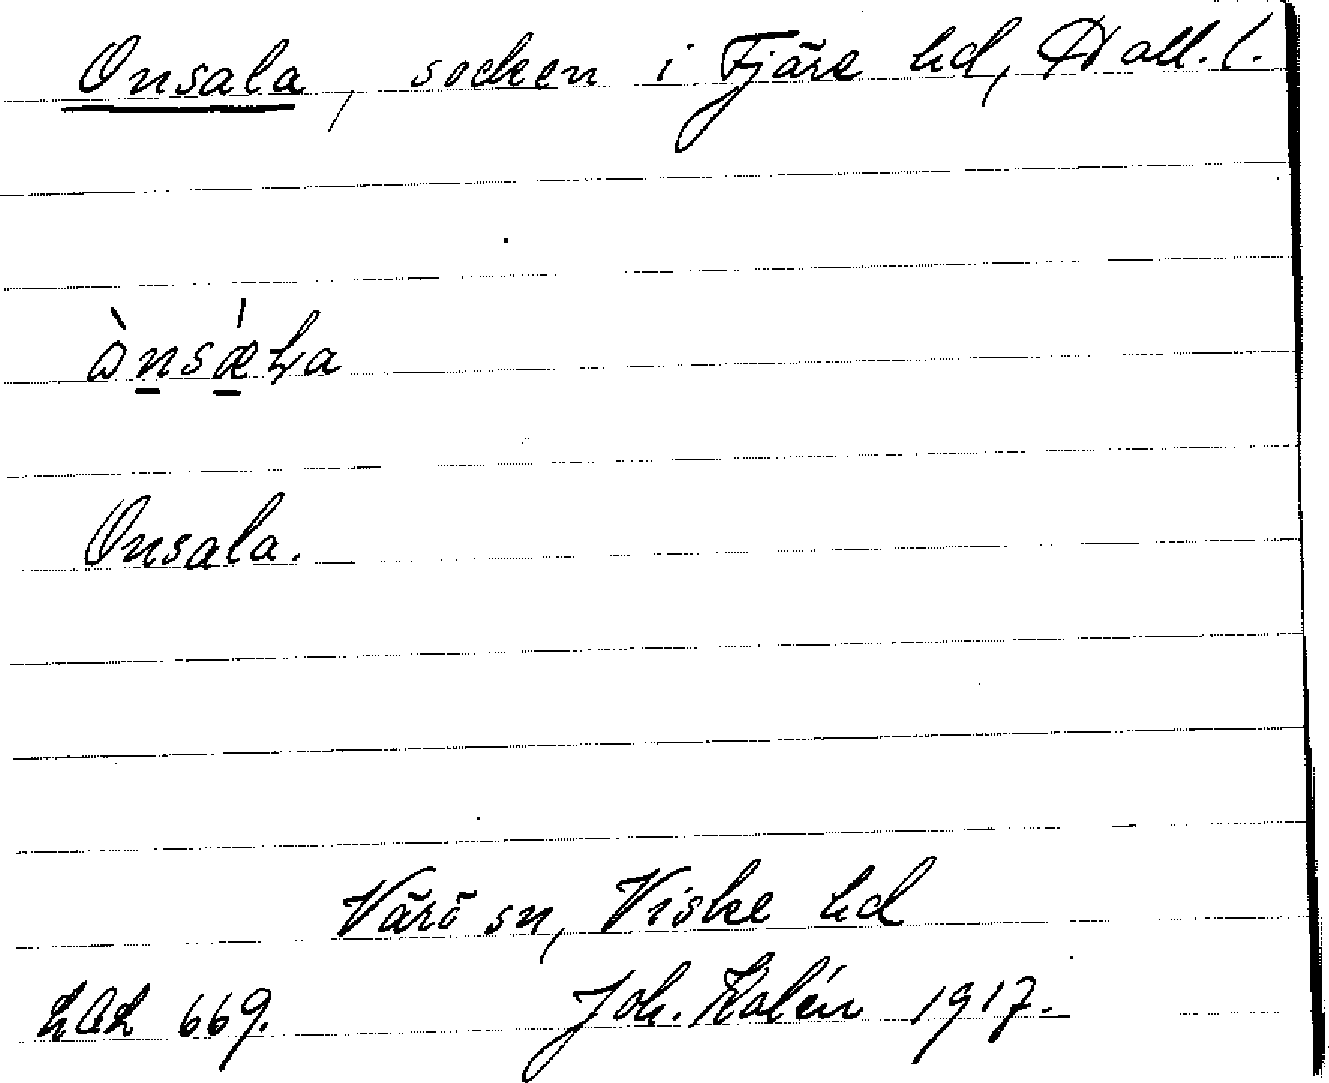 Onsala, socken i Fjäre hd, Hall. l.
ɷ̀nsǽɫa
Onsala.
Värö sn, Viske hd
669. Joh. Kalén 1917.